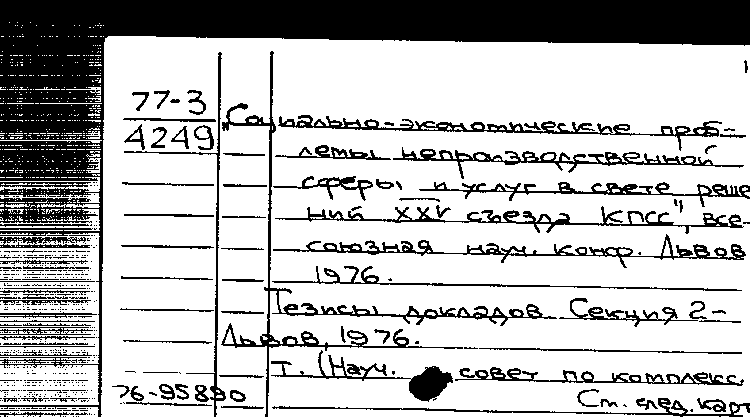 77-3
4249
„Социально-экономические проб-
лемы непроизводственной
сферы и услуг в свете реше
ний XXV съезда КПСС", все-
союзная науч. конф. Львов
1976.
Тезисы докладов. Секция 2-
Львов, 1976.
т. (Науч. совет по комплекс.
76-95890
См. след. карт